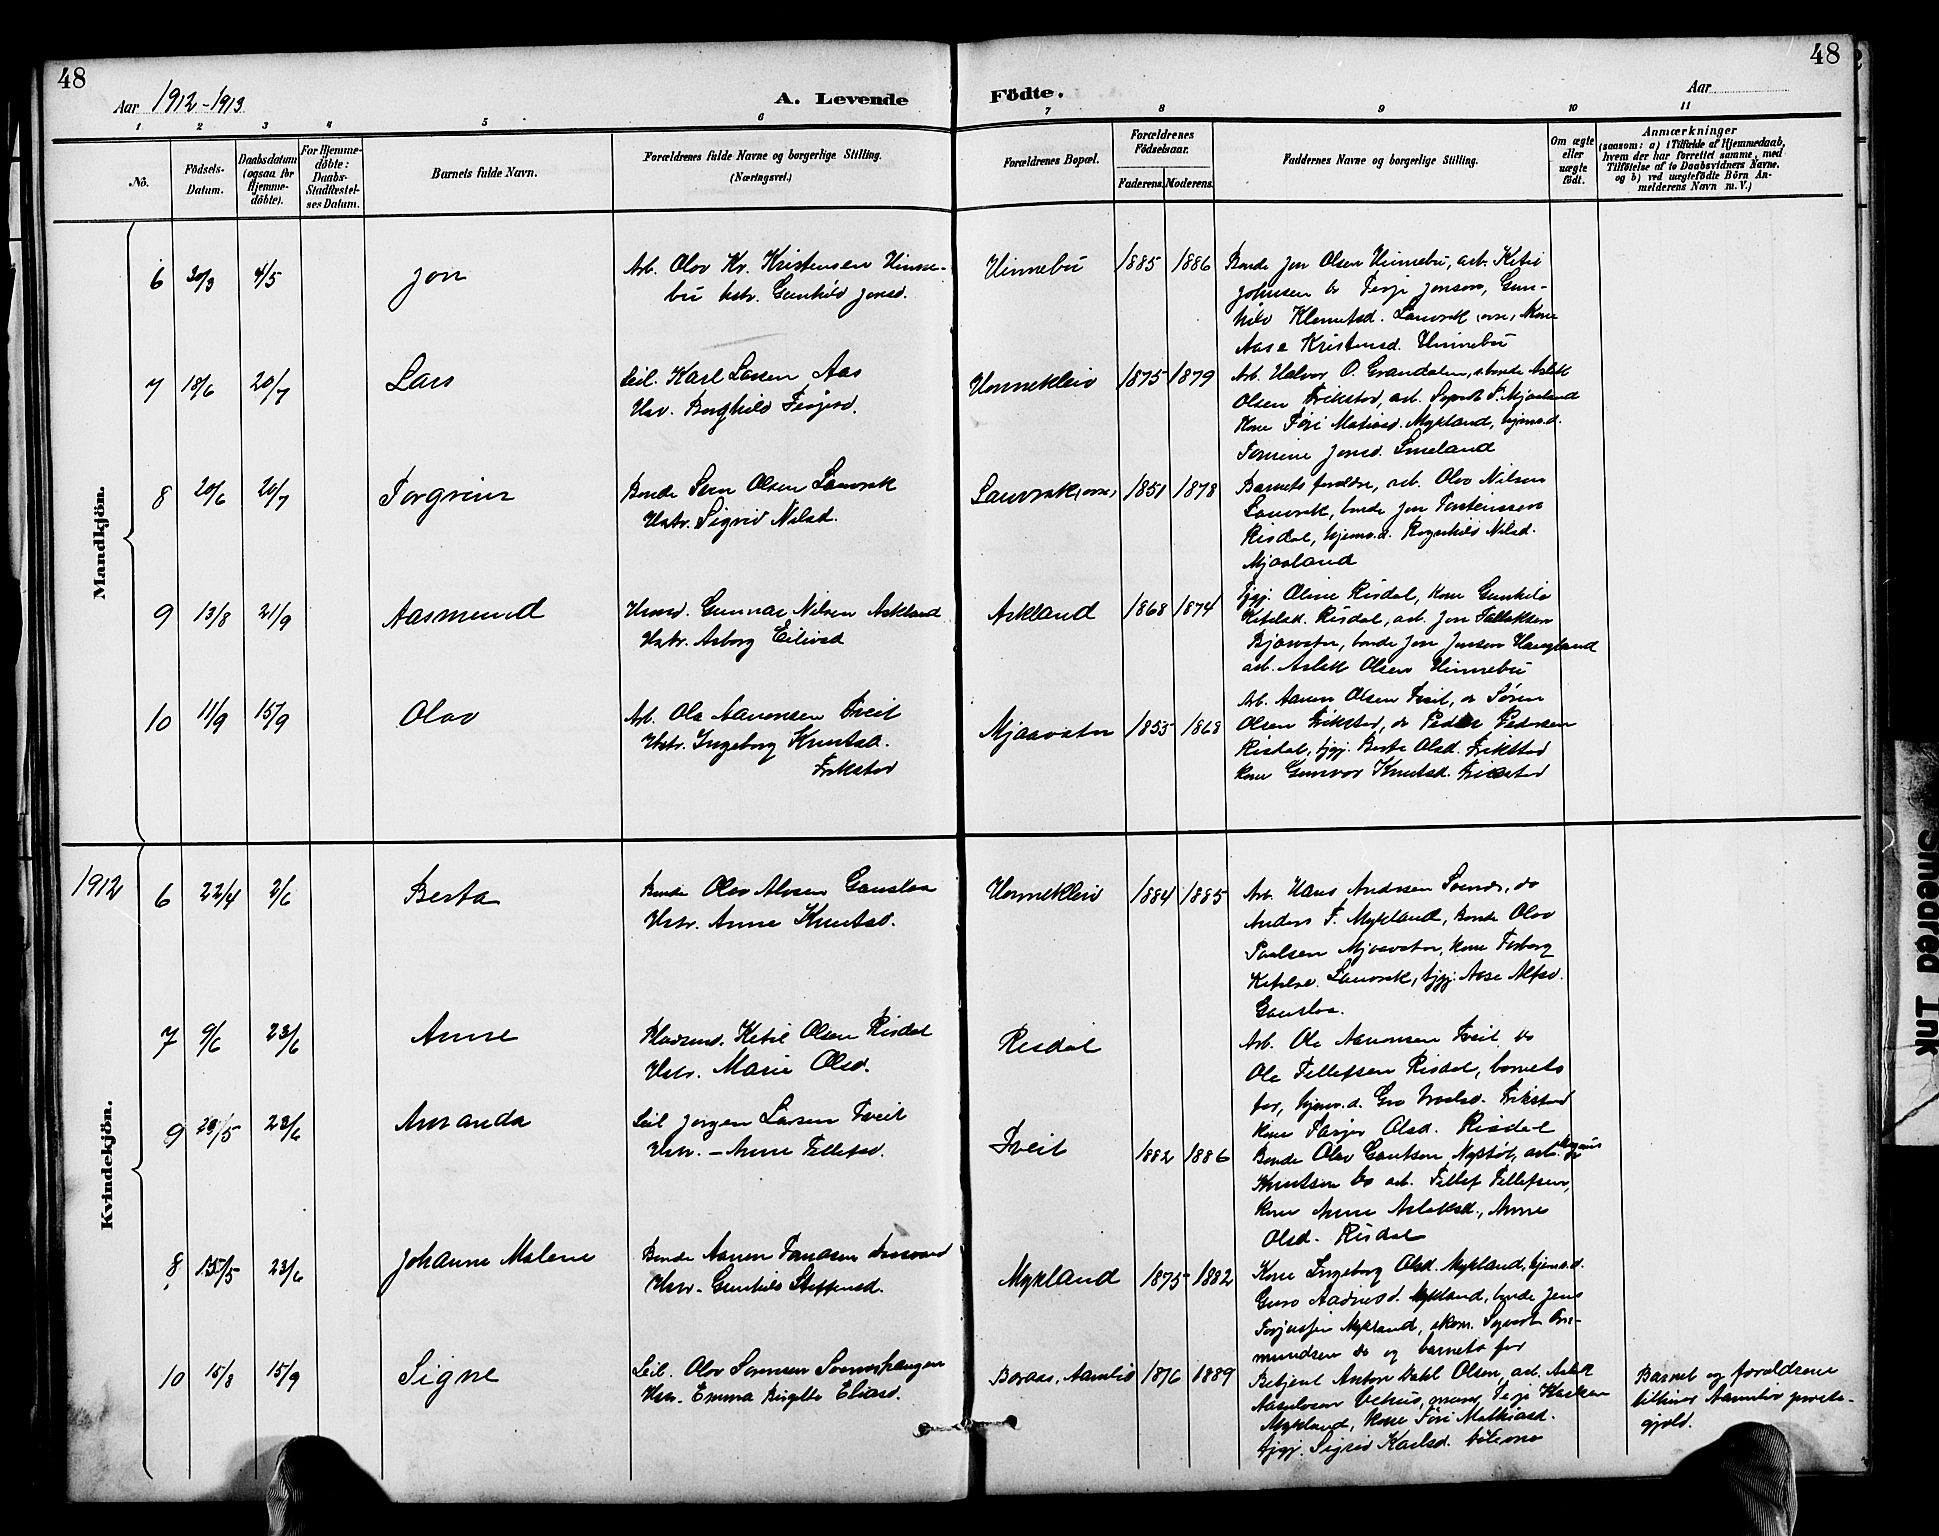 48
48
Aar 1912-1913
A. Levende Födte.
Aar
1 2 3 4 5 6 7 8 9 10 11
No.
Födsels-Datum.
Daabsdatum (ogsaa for Hjemme-döbte).
For Hjemme-döbte: Daabs-Stadfæstel-ses Datum.
Barnets fulde Navn.
Forældrenes fulde Navne og borgerlige Stilling. (Næringsvei.)
Forældrenes Bopæl.
Forældrenes Födselsaar.
Faderens. Moderens.
Faddernes Navne og borgerlige Stilling.
Om ægte eller uægte födt.
Anmærkninger
(saasom: a) i Tilfælde af Hjemmedaab,
hvem der har forrettet samme, med
Tilföielse af to Daabsvidners Navne.
og b) ved uægtefödte Börn An-
melderens Navn m. V.)
Mandkjön.
6 30/3 4/5 Jon
Arb. Olov Kr. Kristensen Hinne-
bu hstr. Gunhild Jonsd.
Hinnebu 1885 1886
Bonde Jon Olsen Hinnebu, arb. Ketil
Johnsen do Terje Jonson, Gun-
hild Klemetsd. Lauvrak, kone
Aase Kristensd. Hinnebu
7 18/6 20/7 Lars
Seil. Karl Larsen Aas
Hstr. Borghild Terjesd.
Honnekleiv 1875 1879
Arb. Halvor O. Grandalen, bonde Aslak
Olsen Frikstad, arb. Mjaaland
Kone Töri Matiasd. Mykland, hjemv.d.
Tomine Jonsd. Smeland
8 20/6 20/7 Torgrim
Bonde Olsen Lauvrak
Hstr. Sigrid Nilsd.
Lauvrak 1851 1878
Barnets foreldre, arb. Olov Nilsen
Lauvrak, bonde Jon Torsteinsen
Risdal, hjemv.d. Ragnhild Nilsd.
Mjaaland
9 13/8 21/9 Aasmund
Husmd. Gunnar Nilsen Askland
Hstr. Asborg Eilivsd
Askland 1868 1874
Pige Oline Risdal, kone Gunhild
Ketilsd. Risdal, arb. Jon Tallaksen
Bjorvatn, bonde Jon Jensen Haugland
arb. Aslak Olsen Hinnebu
10 11/9 15/9 Olav
Arb. Ola Aanonsen Tveit
Hstr. Ingeborg Knutsd.
Frikstad
Mjaavatn 1855 1868
Arb. Aanon Olsen Tveit, do Sören
Olsen Frikstad, do Peder Pedersen
Risdal, pige Berte Olsd. Frikstad
kone Gunvor Knutsd. Frikstad
Kvindekjön.
1912 6 22/4 2/6 Berta
Bonde Olov Alvsen Gauslaa
Hstr. Anne Knutsd.
Honnekleiv 1884 1885
Arb. Hans Andrsen, do
Anders T. Mykland, Bonde Olov
Paalsen Mjaavatn, kone Torborg
Ketilsd. Lauvrak, pige Aase Alfsd.
Gauslaa.
7 9/6 23/6 Anne
Pladsmd. Ketil Olsen Risdal
Hstr. Marie Olsd.
Risdal
Arb. Ola Aanonsen Tveit do
Ola Tellefsen Risdal, barnets
far, hjemv.d. Gro Frikstad
kone Tarjer Olsd. Risdal
9 28/5 23/6 Amanda
Seil Jorgen Larsen Tveit
Hstr. - Anne Tellefsd.
Tveit 1882 1886
Bonde Olav Gautsen Nystöl, arb. Magnus
Knutsen do arb. Tellef Tellefsen,
kone Anne Aslaksd., Anne
Olsd. Risdal
8 15/5 23/6 Johanne Malene
Bonde Aanon
Hstr. Gunhild Steffensd.
Mykland 1875 1882
Kone Ingeborg Olsd. Mykland, hjemv.d.
Guro Aadnesd. Mykland, bonde Jens
Terjussen Mykland, Sigvart Om-
mundsen do og barnets far
10 15/8 15/9 Signe
Seil. Olov Sörensen Svenshaugen
Hstr. Emma Birgitte Eliasd.
Boraas, Aamli 1876 1889
Betjent Anton Dahl Olsen, arb. Aslak
Vehus, Terje
Mykland, kone Töri Mathiasd.
pige Sigrid Karlsd.
Barnet og foreldrene
tilhører Aamlis preste-
gjeld.
Smeared Ink